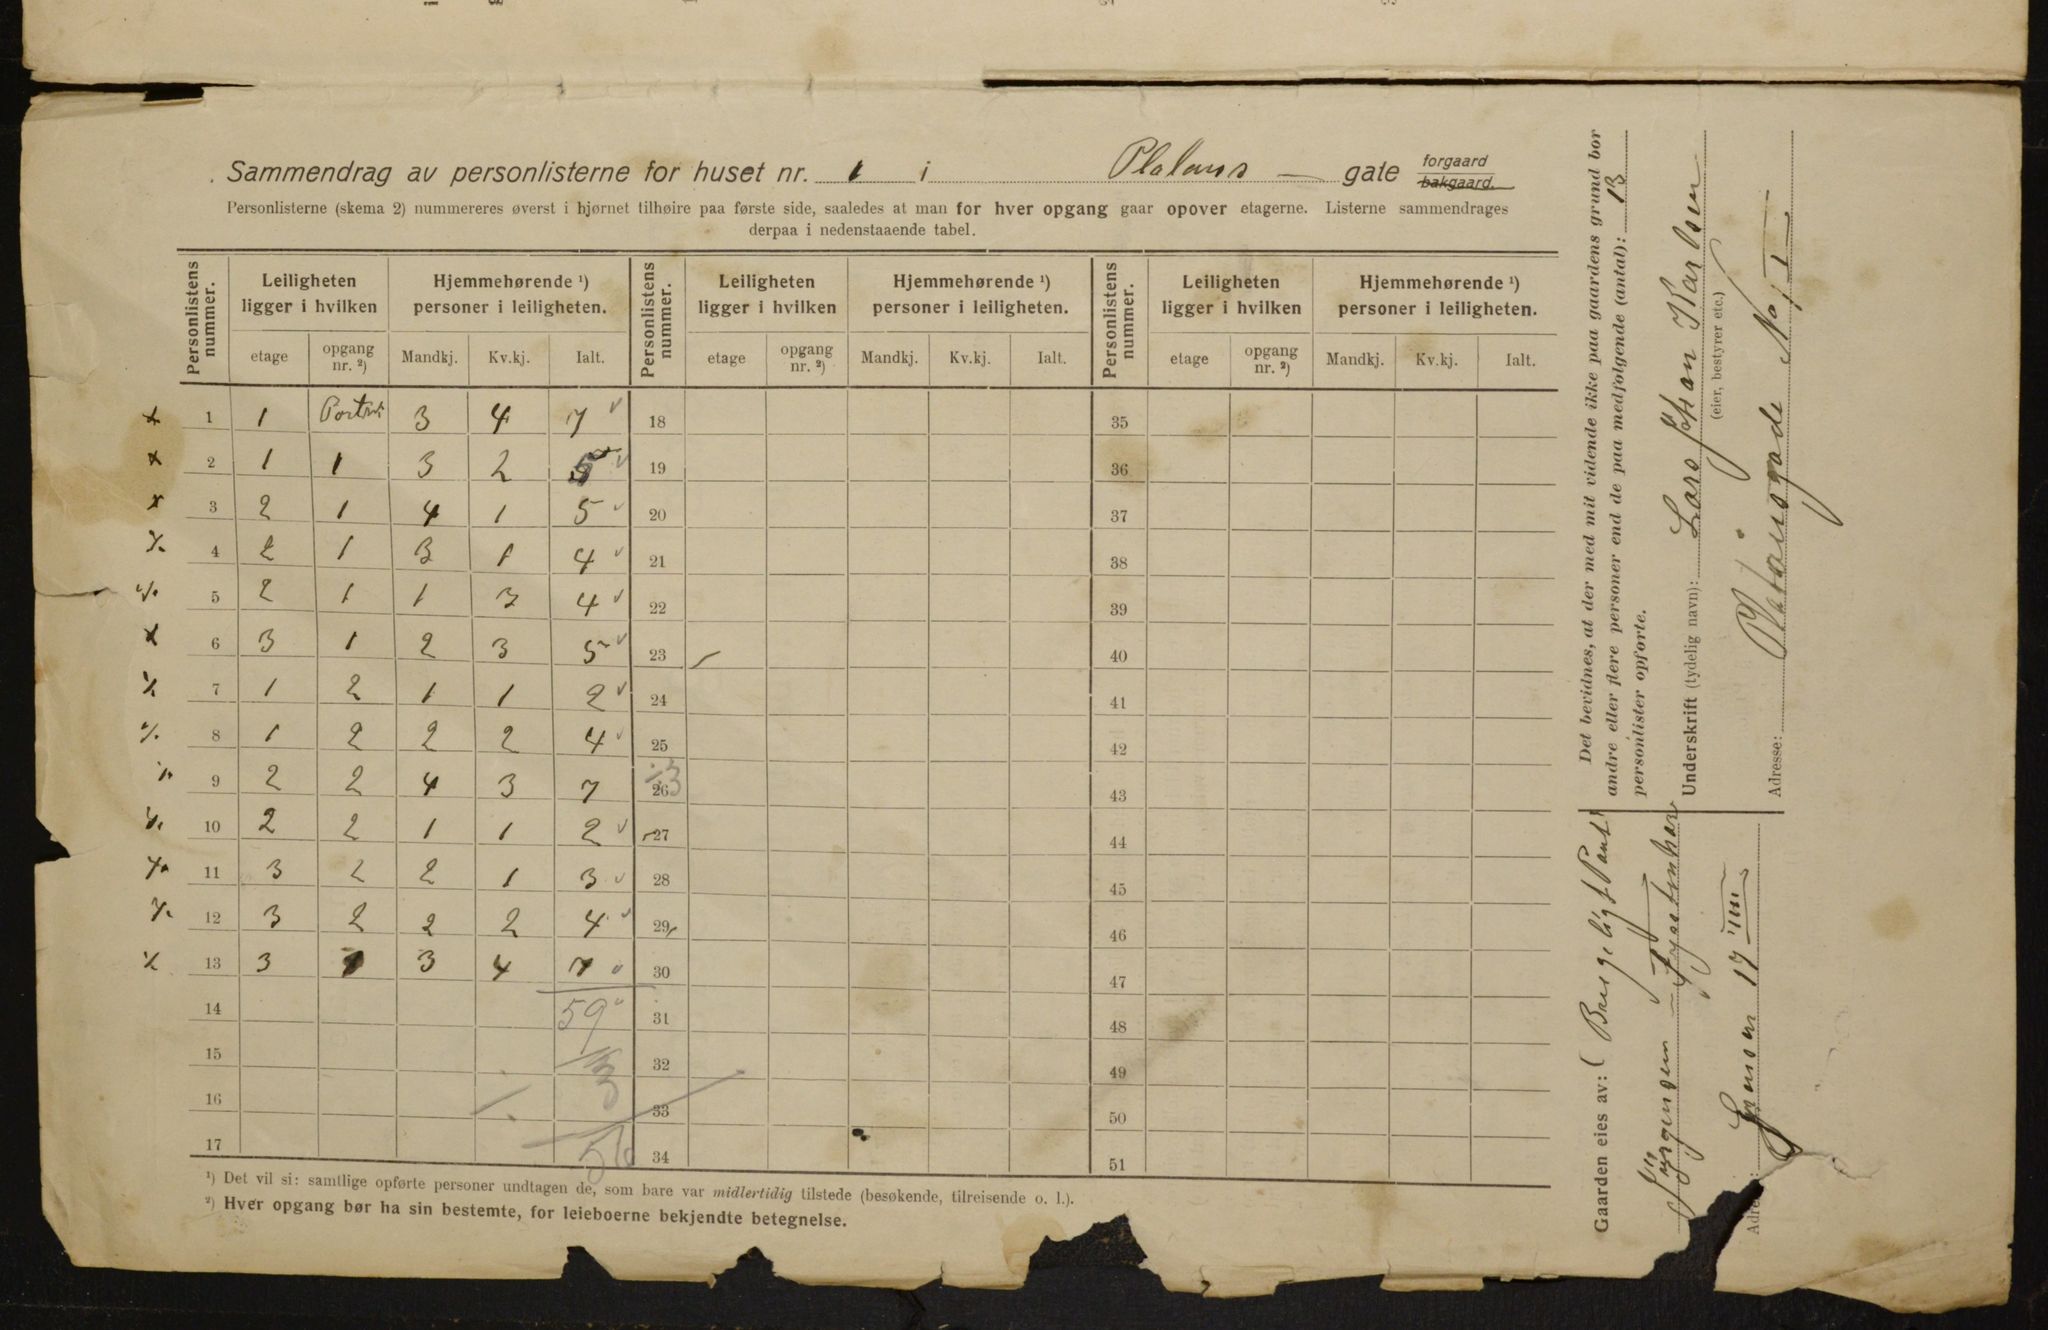 Sammendrag av personlisterne for huset nr. 1 i Platous gate forgaard bakgaard.
Personlisterne (skema 2) nummereres øverst i hjørnet tilhøire paa første side, saaledes at man for hver opgang gaar opover etagerne. Listerne sammendrages
derpaa i nedenstaaende tabel.
Personlistens nummer. Leiligheten ligger i hvilken Hjemmehørende ¹) personer i leiligheten. Personlistens nummer. Leiligheten ligger i hvilken Hjemmehørende ¹) personer i leiligheten. Personlistens nummer. Leiligheten ligger i hvilken Hjemmehørende ¹) personer i leiligheten.
etage opgang nr. ²) Mandkj. Kv.kj. Ialt. etage opgang nr. ²) Mandkj. Kv.kj. Ialt. etage opgang nr. ²) Mandkj. Kv.kj. Ialt.
1 1 3 4 7 18 35
2 1 1 3 2 5 19 36
3 2 1 4 1 5 20 37
4 2 1 3 1 4 21 38
5 2 1 1 3 4 22 39
6 3 1 2 3 5 23 40
7 1 2 1 1 2 24 41
8 1 2 2 2 4 25 42
9 2 2 4 3 7 26 43
10 2 2 1 1 2 27 44
11 3 2 2 1 3 28 45
12 3 2 2 2 4 29 46
13 3 1 3 4 7 30 47
14 59 31 48
15 3 32 49
16 33 50
17 56 34 51
¹) Det vil si: samtlige opførte personer undtagen de, som bare var midlertidig tilstede (besøkende, tilreisende o. l.).
²) Hver opgang bør ha sin bestemte, for leieboerne bekjendte betegnelse.
Det bevidnes, at der med mit vidende ikke paa gaardens grund bor
andre eller flere personer end de paa medfølgende (antal): 13
personlister opførte.
Underskrift (tydelig navn): Lars Johan Karlsen
(eier, bestyrer etc.)
Adresse: Platousgade No 1 I
Gaarden eies av:
Jörgensen
Jensen 17